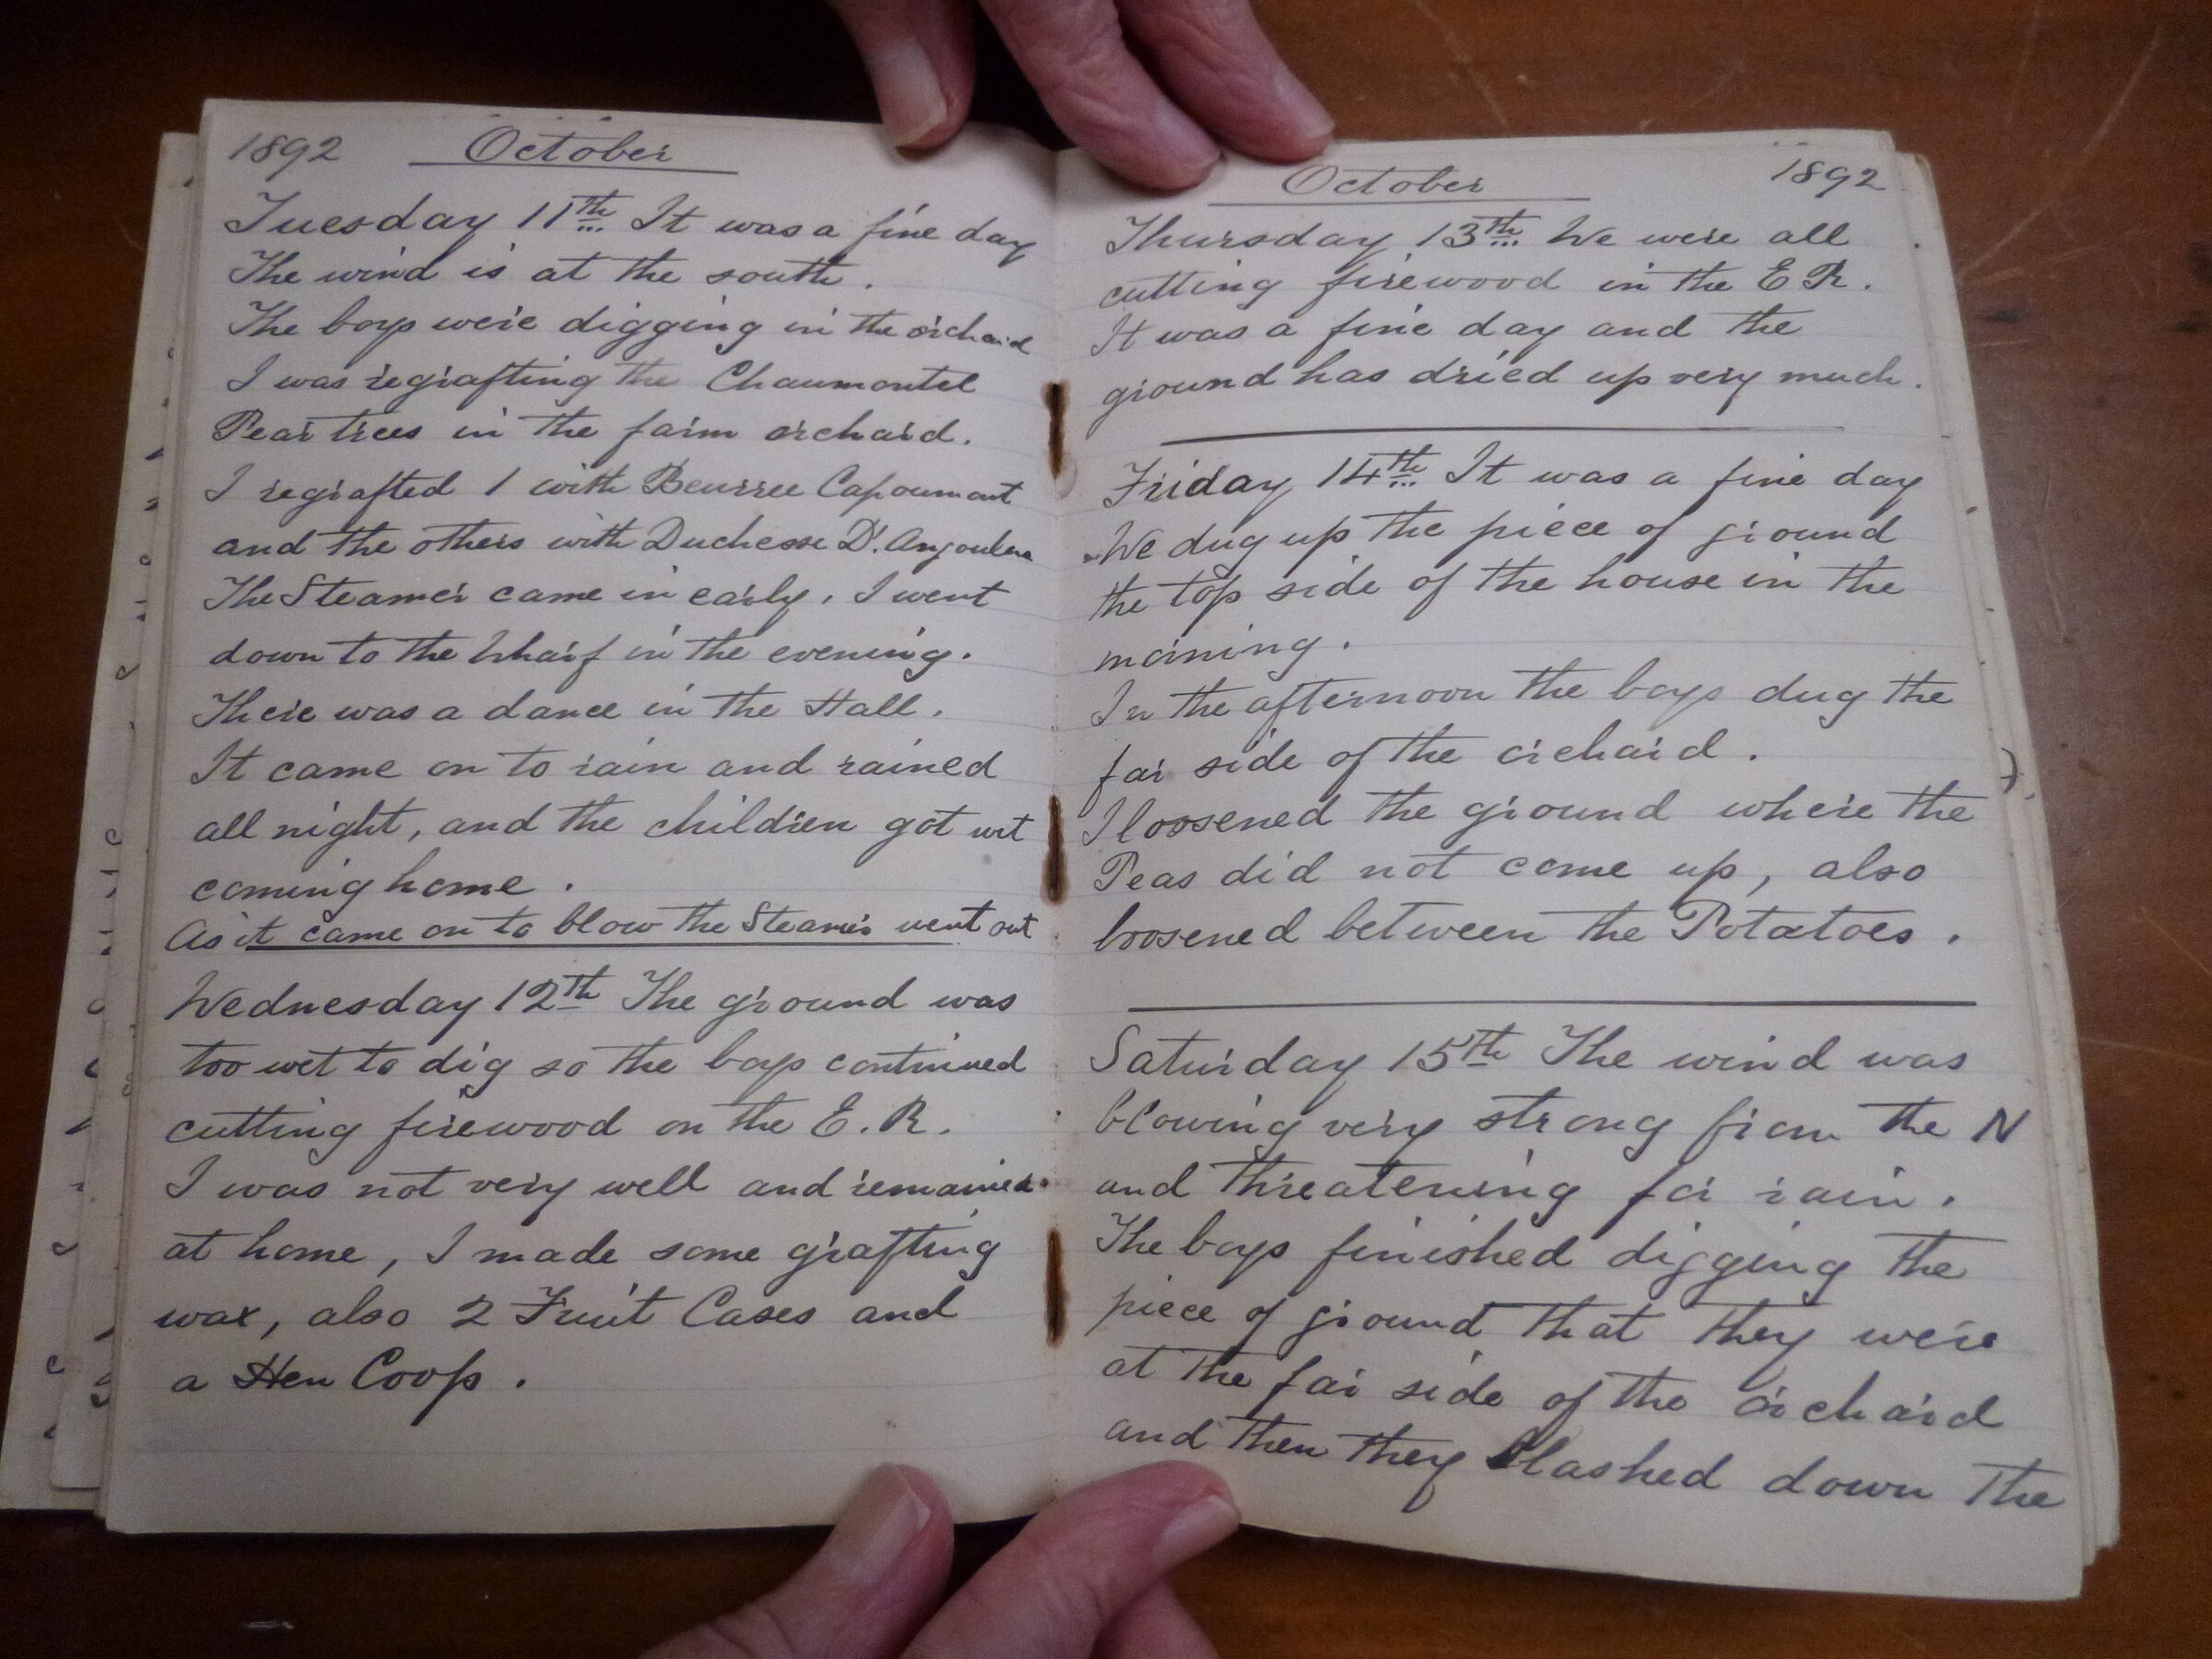 1892 October
Tuesday 11th It was a fine day
The wind is at the south.
The boys were digging in the orchard
I was regrafting the Chaumontel
Pear trees in the farm orchard.
I regrafted 1 with Beurree Capoumont
and the others with Duchesse D'. Angouleme
The Steamer came in early, I went
down to the Wharf in the evening.
There was a dance in the Hall.
It came on to rain and rained
all night, and the children got wet
coming home.
As it came on to blow the Steamer went out
Wednesday 12th The ground was
too wet to dig so the boys continued
cutting firewood on the E. R.
I was not very well and remained
at home, I made some grafting
wax, also 2 Fruit Cases and
a Hen Coop.
October 1892
Thursday 13th We were all
cutting firewood in the E R.
It was a fine day and the
ground has dried up very much.
Friday 14th It was a fine day
We dug up the piece of ground
the top side of the house in the
morning.
In the afternoon the boys dug the
far side of the orchard.
I loosened the ground where the
Peas did not come up, also
loosened between the Potatoes.
Saturday 15th The wind was
blowing very strong from the N
and threatening for rain.
The boys finished digging the
piece of ground that they were
at the far side of the orchard
and then they slashed down the